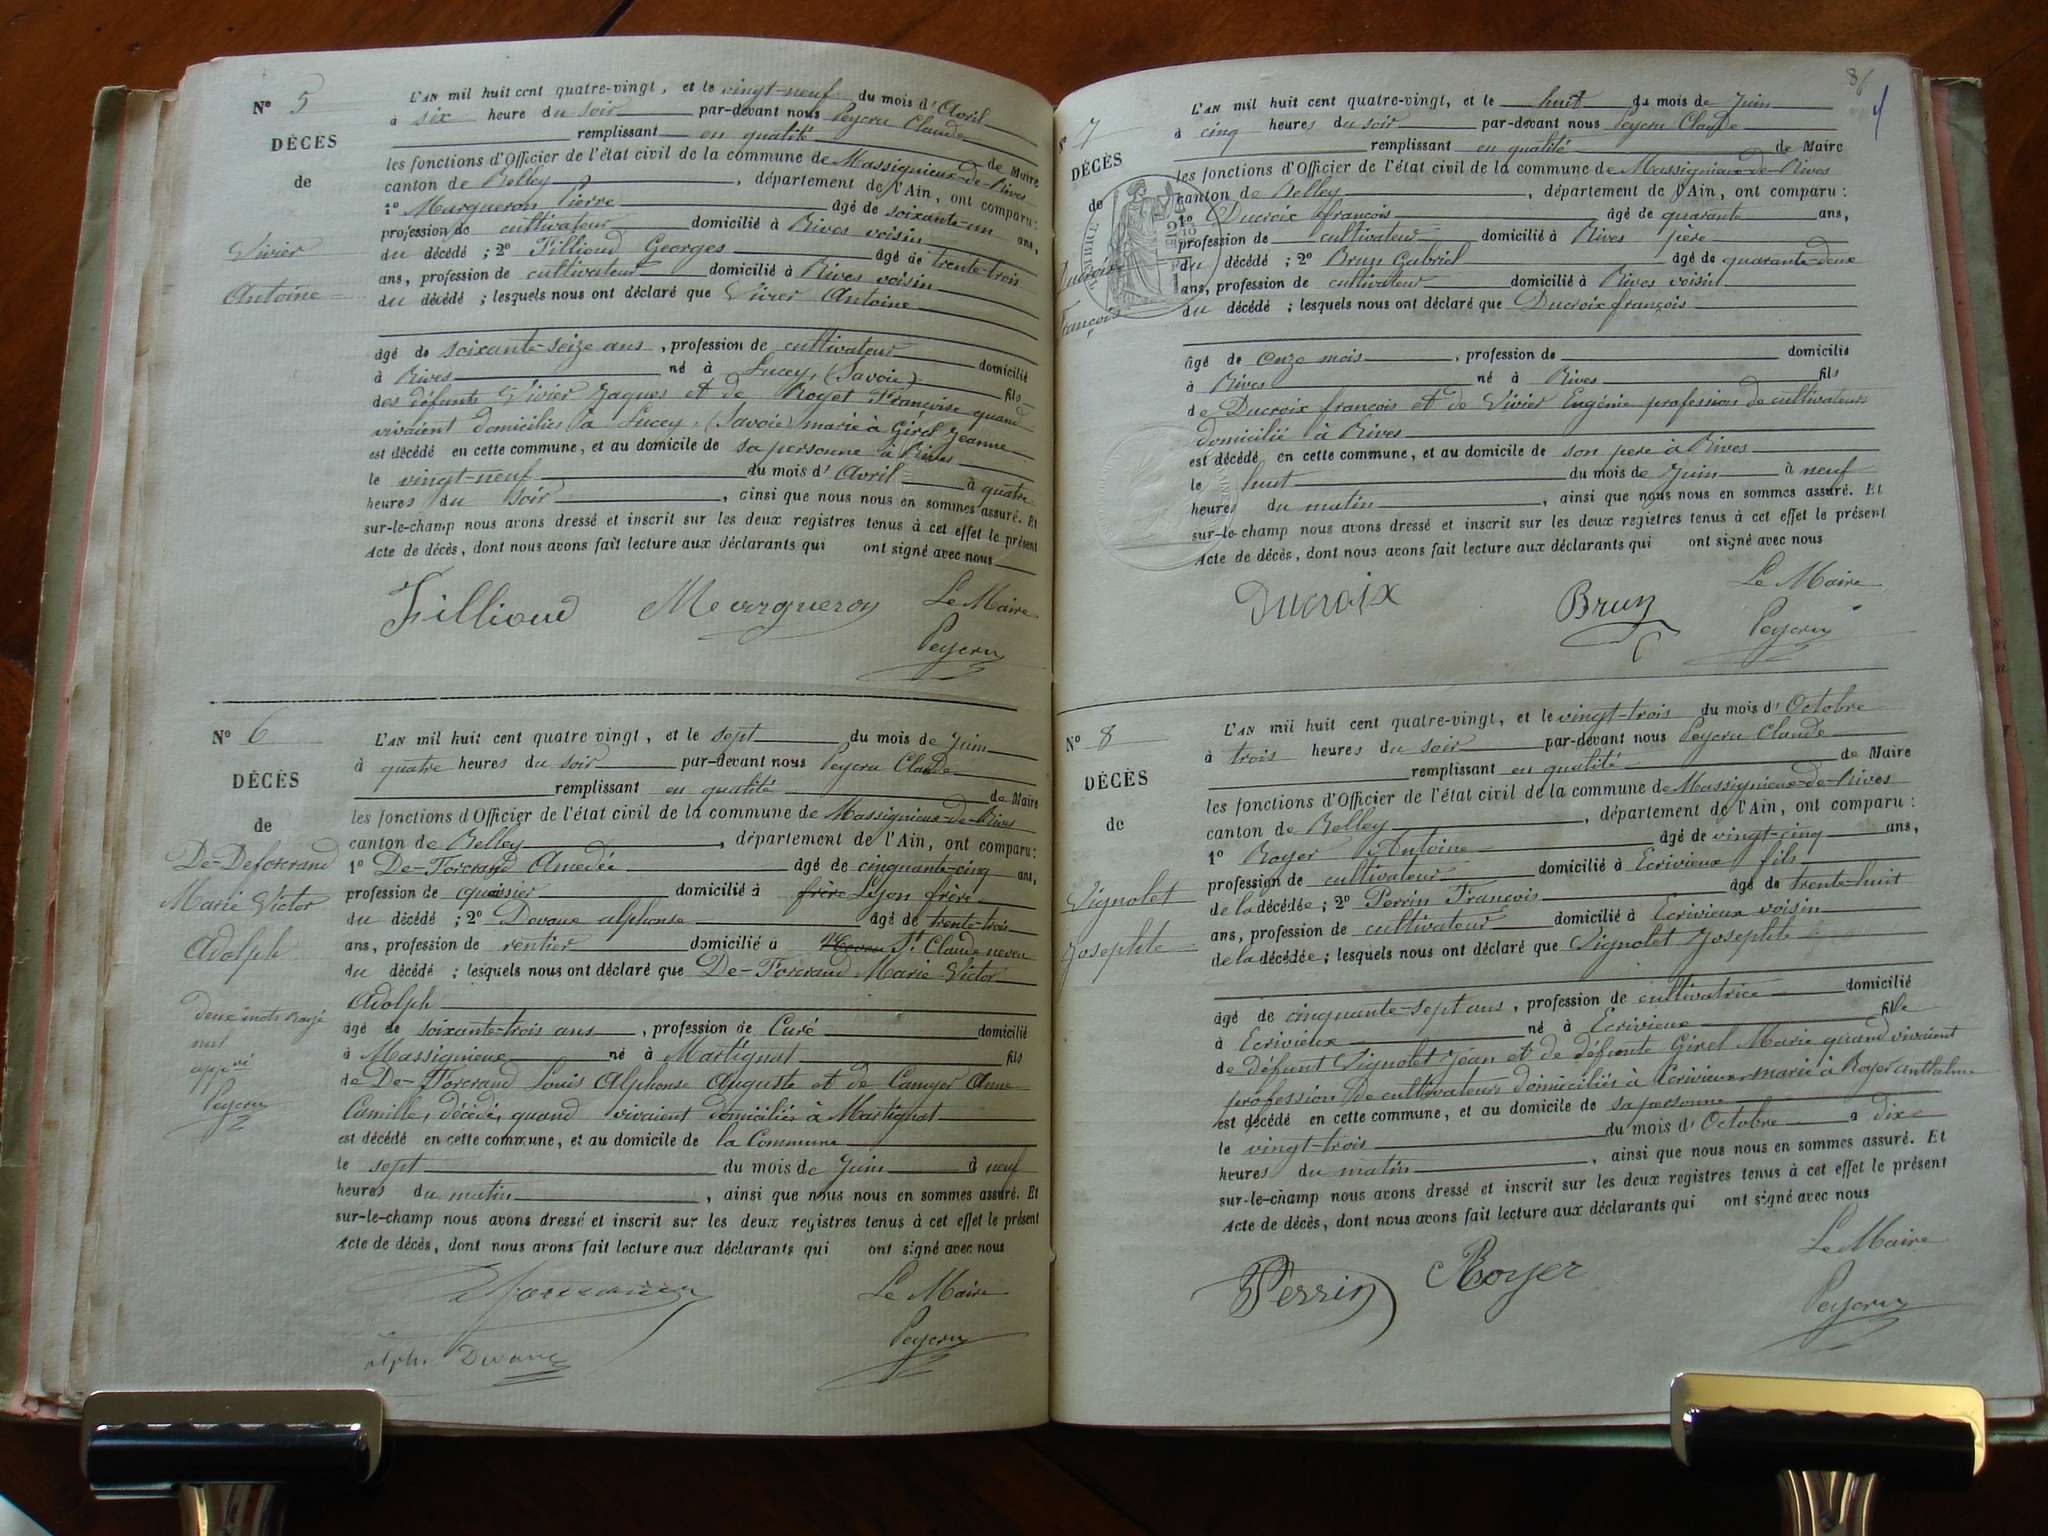 Nº 5
DÉCÈS
de
Vivier
Antoine
L'AN mil huit cent quatre-vingt, et le vingt-neuf du mois d'Avril
à six heure du soir par-devant nous Peycru Claude
remplissant en qualité de Maire
les fonctions d'Officier de l'état civil de la commune de Massignieux-de-Rives
canton de Belley, département de l'Ain, ont comparu:
1º Margueron Pierre âgé de soixante-un ans,
profession de cultivateur domicilié à Rives voisin
du décédé; 2º Fillioud Georges âgé de trente-trois
ans, profession de cultivateur domicilié à Rives voisin
du décédé; lesquels nous ont déclaré que Vivier Antoine
âgé de soixante-seize ans, profession de cultivateur domicilié
à Rives né à Lucey, (Savoie) fils
des défunts Vivier Jaques et de Roget Francoise quand
vivaient domiciliés à Lucey, (Savoie) marié à Girel Jeanne
est décédé en cette commune, et au domicile de sa personne à Rives
le vingt-neuf du mois d'Avril à quatre
heures du soir, ainsi que nous nous en sommes assuré. Et
sur-le-champ nous avons dressé et inscrit sur les deux registres tenus à cet effet le présent
Acte de décès, dont nous avons fait lecture aux déclarants qui ont signé avec nous
Fillioud Margueron Le Maire
Peycru
Nº 6
DÉCÈS
de
De-Deforcrand
Marie Victor
Adolph
deux mots rayé
nul
Peycru
L'AN mil huit cent quatre vingt, et le sept du mois de Juin
à quatre heures du soir par-devant nous Peycru Claude
remplissant en qualité de Maire
les fonctions d'Officier de l'état civil de la commune de Massignieux-de-Rives
canton de Belley, département de l'Ain, ont comparu:
1º De-Forcrand Amedée âgé de cinquante-cinq ans,
profession de domicilié à frère Lyon frère
du décédé; 2º Devaux alphonse âgé de trente-trois
ans, profession de rentier domicilié à St Claude neveu
du décédé; lesquels nous ont déclaré que De-Forcrand Marie Victor
Adolph
âgé de soixante-trois ans, profession de Curé domicilié
à Massignieux né à Martignat fils
de De-Forcrand Louis Alphonse Auguste et de Camyer Anne
Camille, décédé, quand vivaient domiciliés à Martignat
est décédé en cette commune, et au domicile de la Commune
le sept du mois de Juin à neuf
heures du matin, ainsi que nous nous en sommes assuré. Et
sur-le-champ nous avons dressé et inscrit sur les deux registres tenus à cet effet le présent
Acte de décès, dont nous avons fait lecture aux déclarants qui ont signé avec nous
Le Maire
Peycru
86
4
Nº 7
DÉCÈS
de
Ducroix
François
L'AN mil huit cent quatre-vingt, et le huit du mois de Juin
à cinq heures du soir par-devant nous Peycru Claude
remplissant en qualité de Maire
les fonctions d'Officier de l'état civil de la commune de Massignieux-de-Rives
canton de Belley, département de l'Ain, ont comparu:
1º Ducroix françois âgé de quarante ans,
profession de cultivateur domicilié à Rives père
du décédé; 2º Brun Gabriel âgé de quarante-deux
ans, profession de cultivateur domicilié à Rives voisin
du décédé; lesquels nous ont déclaré que Ducroix françois
âgé de onze mois, profession de domicilié
à Rives né à Rives fils
de Ducroix francois et de Vivier Eugénie profession de cultivateurs
domicilié à Rives
est décédé en cette commune, et au domicile de son pere à Rives
le huit du mois de Juin à neuf
heures du matin, ainsi que nous nous en sommes assuré. Et
sur-le-champ nous avons dressé et inscrit sur les deux registres tenus à cet effet le présent
Acte de décès, dont nous avons fait lecture aux déclarants qui ont signé avec nous
Le Maire
Ducroix Brun Peycru
Nº 8
DÉCÈS
de
Vignolet
Josephte
L'AN mil huit cent quatre-vingt, et le vingt-trois du mois d'Octobre
à trois heures du soir par-devant nous Peycru Claude
remplissant en qualité de Maire
les fonctions d'Officier de l'état civil de la commune de Massignieux-de-Rives
canton de Belley, département de l'Ain, ont comparu:
1º Royer Antoine âgé de vingt-cinq ans,
profession de cultivateur domicilié à Ecrivieux fils
de la décédée; 2º Perrin Francois âgé de trente-huit
ans, profession de cultivateur domicilié à Ecrivieux voisin
de la décédée; lesquels nous ont déclaré que Vignolet Josephte
âgé de cinquante-sept ans, profession de cultivatrice domicilié
à Ecrivieux né à Ecrivieux fille
de défunt Vignolet Jéan et de défunte Girel Marie quand vivaient
profession de cultivateurs domiciliés à Ecrivieux marié à Royer Anthelme
est décédé en cette commune, et au domicile de sa personne
le vingt-trois du mois d'Octobre à dix
heures du matin, ainsi que nous nous en sommes assuré. Et
sur-le-champ nous avons dressé et inscrit sur les deux registres tenus à cet effet le présent
Acte de décès, dont nous avons fait lecture aux déclarants qui ont signé avec nous
Le Maire
Perrin Royer Peycru